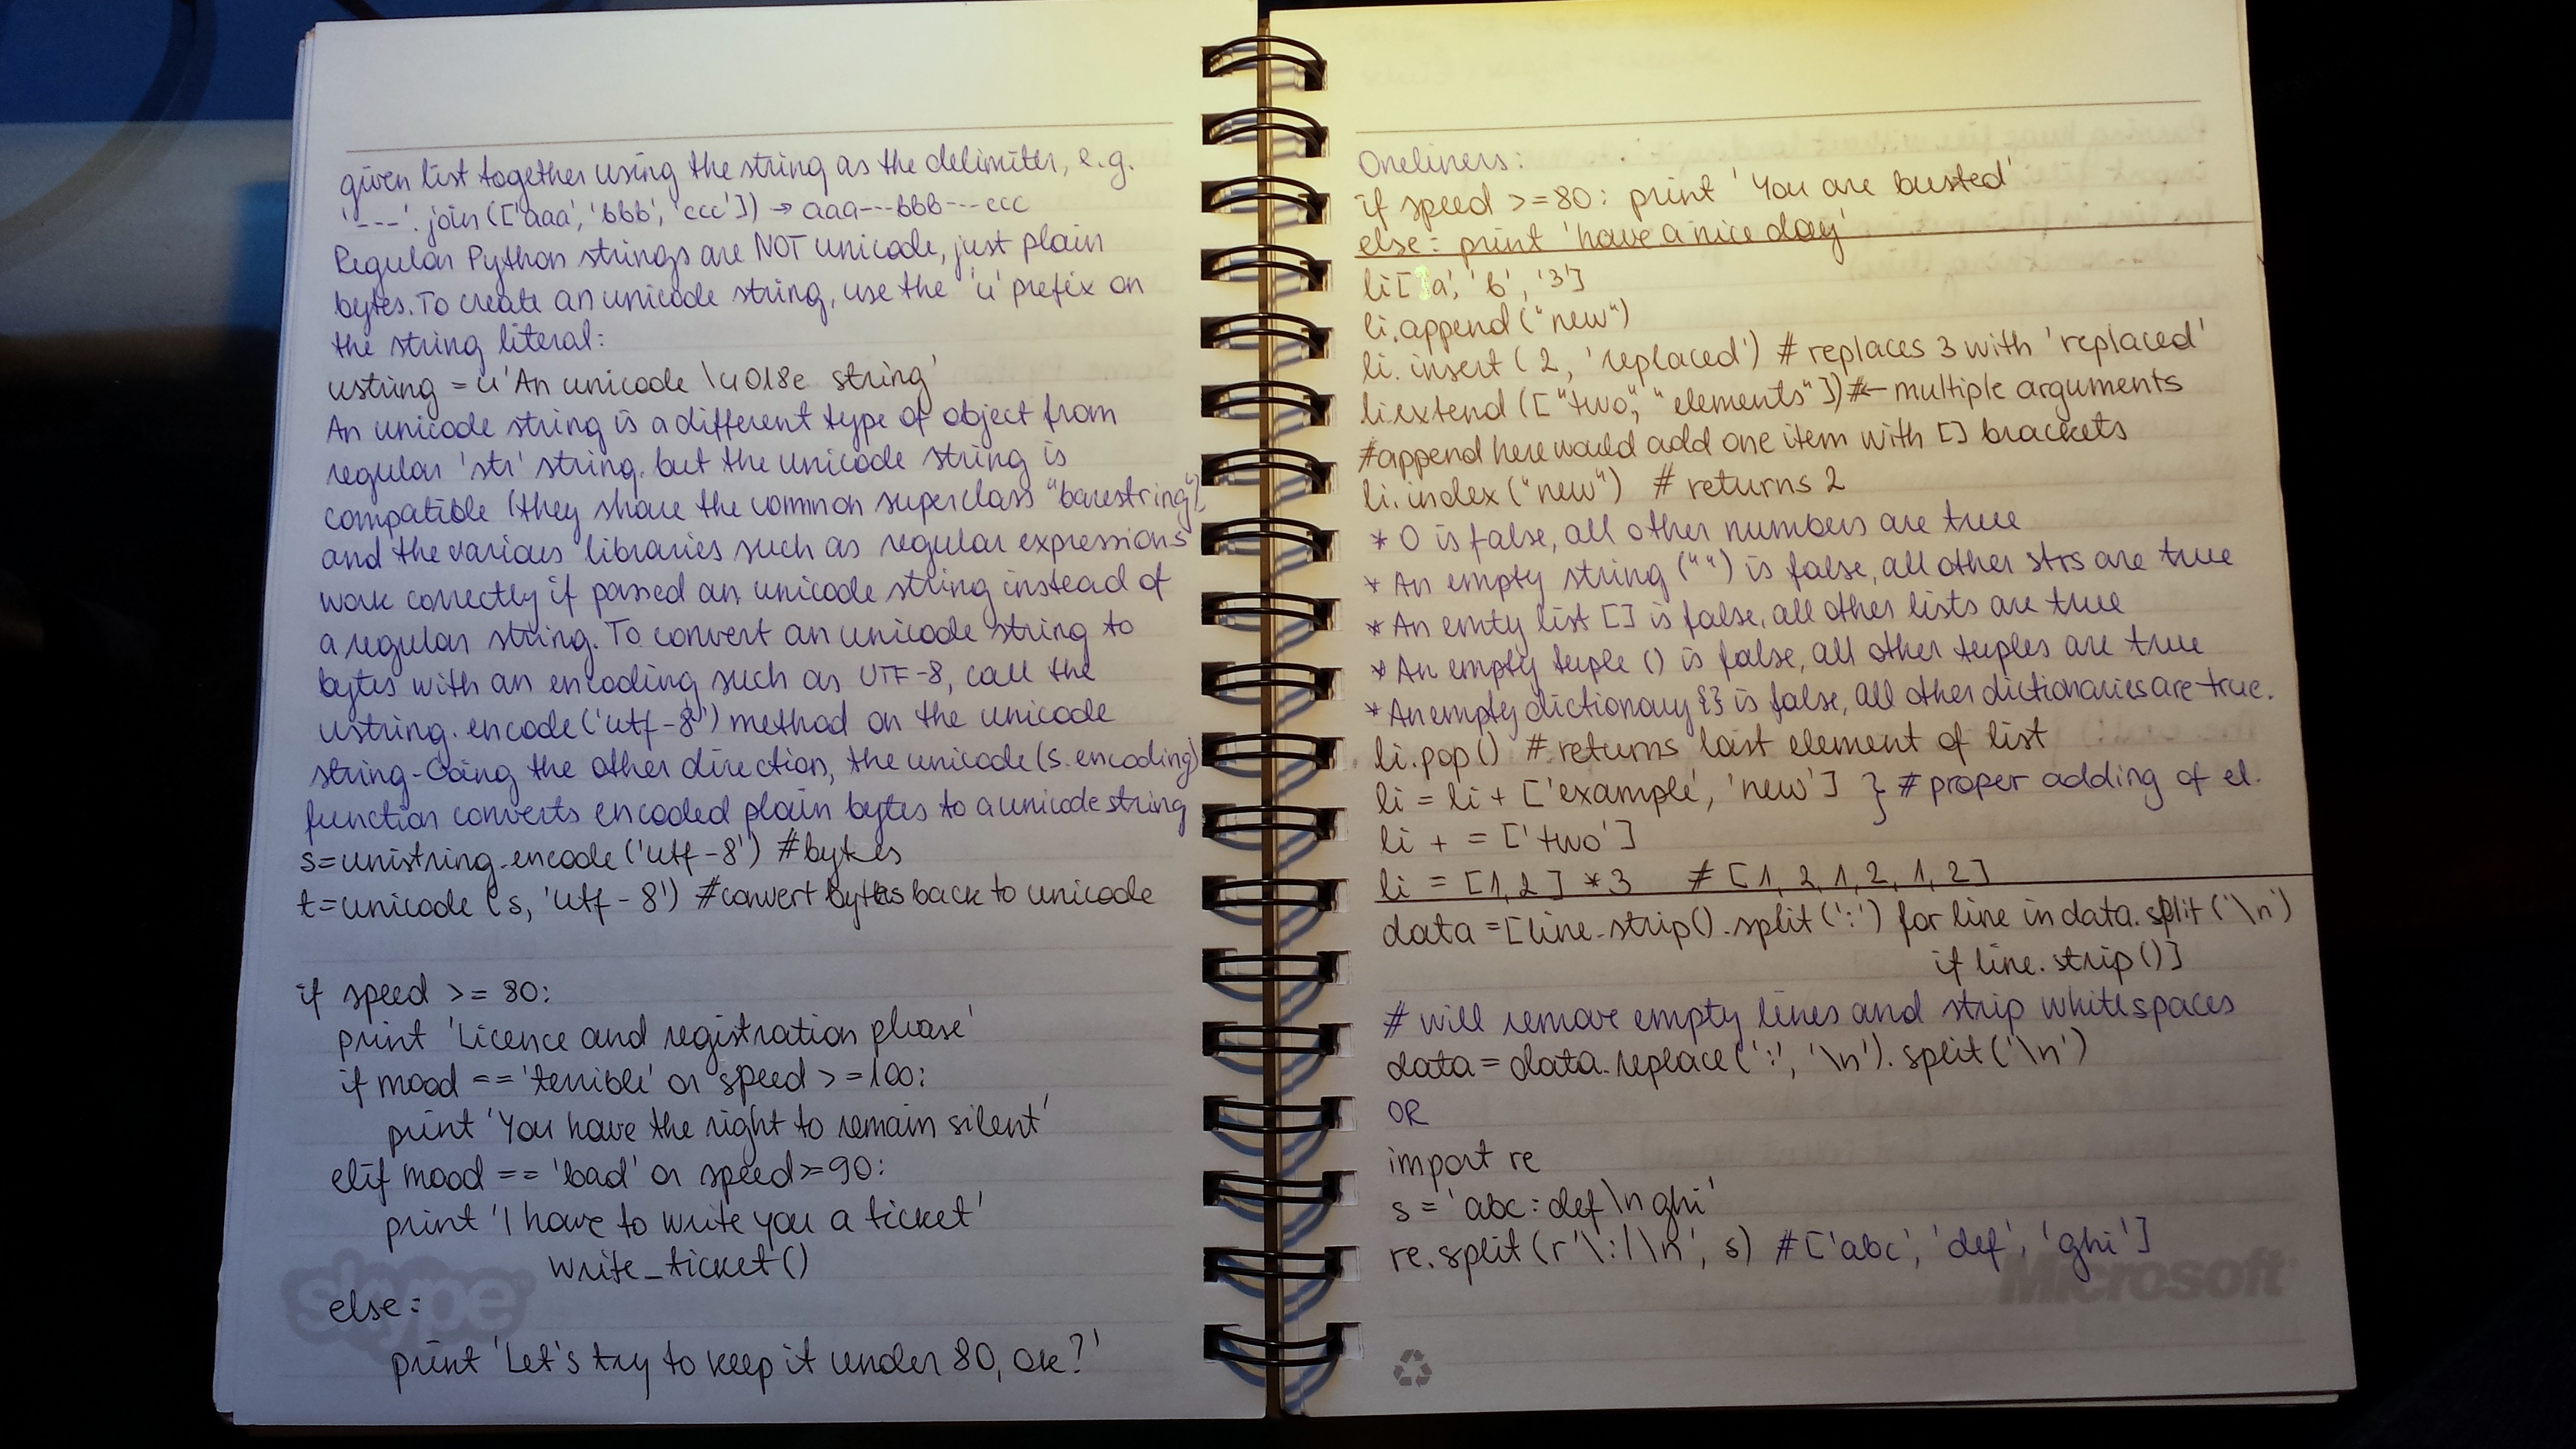 given list together using the string as the delimiter, e.g.
'---'.join(['aaa', 'bbb', 'ccc']) → aaa---bbb---ccc
Regular Python strings are NOT unicode, just plain
bytes. To create an unicode string, use the 'u' prefix on
the string literal:
ustring = u'An unicode \u018e string'
An unicode string is a different type of object from
regular 'str' string. but the unicode string is
compatible (they share the common superclass "barestring")
and the various libraries such as regular expressions
work correctly if passed an unicode string instead of
a regular string. To convert an unicode string to
bytes with an encoding such as UTF-8, call the
ustring.encode('utf-8') method on the unicode
string-Going the other direction, the unicode(s.encoding)
function converts encoded plain bytes to a unicode string
s=unistring.encode('utf-8') #bytes
t=unicode(s, 'utf-8') #convert bytes back to unicode
if speed >= 80:
print 'Licence and registration please'
if mood == 'terrible' or speed >=100:
print 'You have the right to remain silent'
elif mood == 'bad' or speed>=90:
print 'I have to write you a ticket'
write_ticket()
else:
print 'Let's try to keep it under 80, ok?'
skype
Oneliners:
if speed >=80: print 'You are busted'
else: print 'have a nice day'
li['a', 'b', '3']
li.append("new")
li.insert(2, 'replaced') # replaces 3 with 'replaced'
li.extend(["two", "elements"]) #← multiple arguments
#append here would add one item with [] brackets
li.index("new") # returns 2
* 0 is false, all other numbers are true
* An empty string ("") is false, all other strs are true
* An emty list [] is false, all other lists are true
* An empty tuple () is false, all other tuples are true
* An empty dictionary {} is false, all other dictionaries are true.
li.pop() # returns last element of list
li = li + ['example', 'new'] } # proper adding of el.
li + = ['two']
li = [1,2] *3 # [1, 2, 1, 2, 1, 2]
data = [line.strip().split(':') for line in data.split('\n')
if line.strip()]
# will remove empty lines and strip whitespaces
data = data.replace(':', '\n').split('\n')
OR
import re
s = 'abc:def\nghi'
re.split(r'\:|\n', s) # ['abc', 'def', 'ghi']
Microsoft